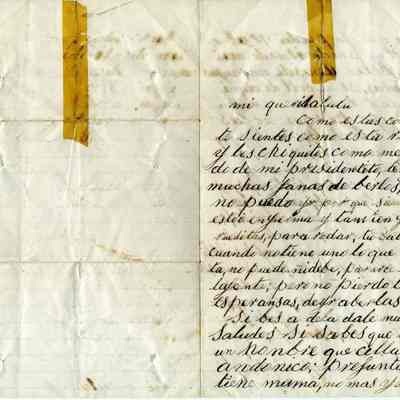 mi querida lulu
como estas co
te sientes como esta r
y los chiquitos como me
do de mi presidentito, te
muchas ganas de berlos,
no puedo yr por que sie
estoi enferma y tanvien y
rueditas, para rodar, tu sab
cuando no tiene uno lo que
ta, no puede ni debe, parece
la jente, pero no pierdo l
esperansas, de yr a berlas
si bes a dela dale mu
saludes si sabes que
un honbre que se lla
andonico: prefunta
tiene mama, no mas y s